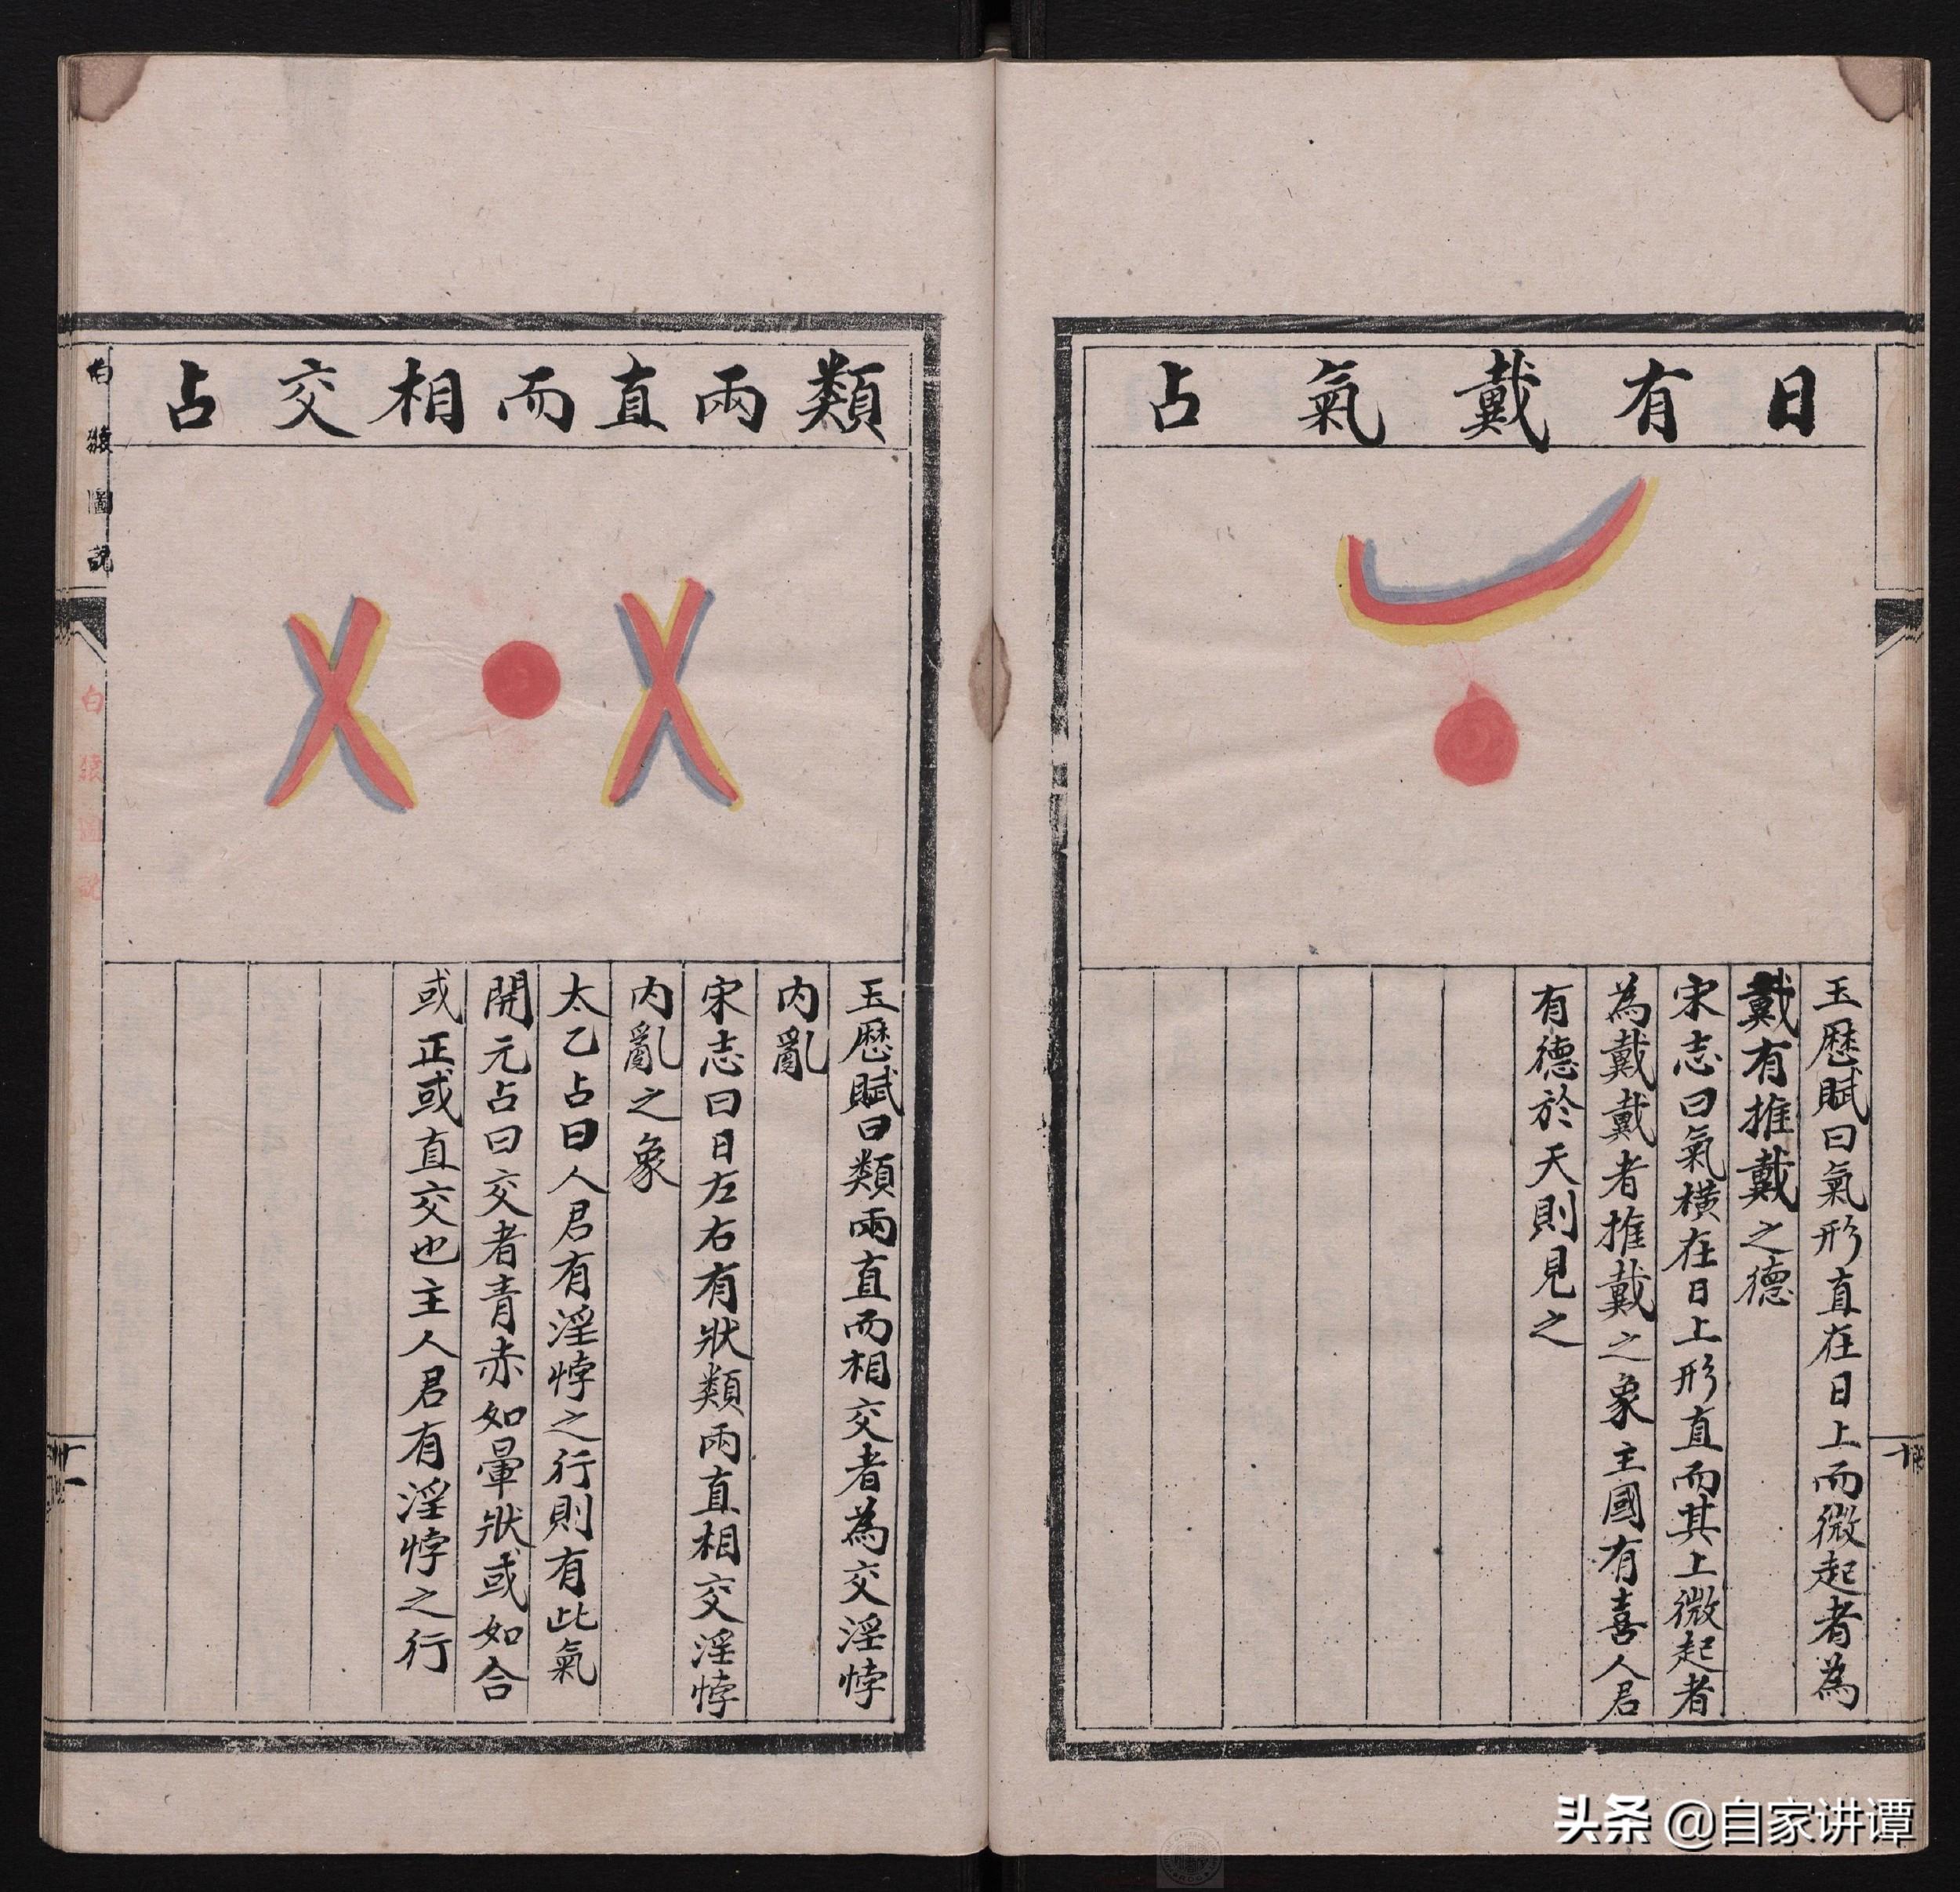 日有戴氣占
玉歷賦曰氣形直在日上而微起者為
戴有推戴之德
宋志曰氣橫在日上形直而其上微起者
為戴戴者推戴之象主國有喜人君
有德於天則見之
類兩直而相交占
玉歷賦曰類兩直而相交者為交淫悖
內亂
宋志曰日左右有狀類兩直相交淫悖
內亂之象
太乙占曰人君有淫悖之行則有此氣
開元占曰交者青赤如暈狀或如合
或正或直交也主人君有淫悖之行
白猿圖說
白猿圖說
十
十一
头条 @自家讲谭